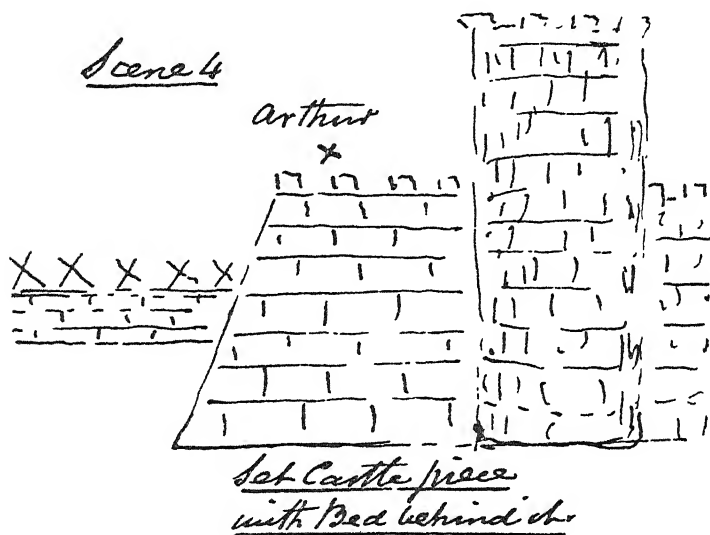 Scene 4
Arthur
x
X X X X X
Set Castle piece
with Bed behind it.